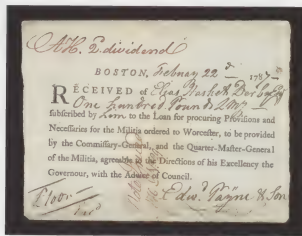 2. dividend
BOSTON, Febnuay 22 d 1787
RECEIVED of Elias Hasket Derby Esq
One Hundred Pounds
subscribed by him to the Loan for procuring Provisions and
Necessaries for the Militia ordered to Worcester, to be provided
by the Commissary-General, and the Quarter-Master-General
of the Militia, agreeable to the Directions of his Excellency the
Governour, with the Advice of Council.
£100..
Edwd Payne & Son